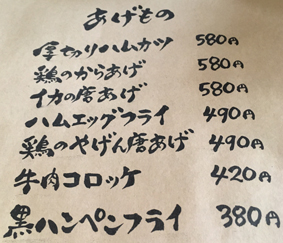 あげもの
厚切りハムカツ 580円
鶏のからあげ 580円
イカの唐あげ 580円
ハムエッグフライ 490円
鶏のやげん唐あげ 490円
牛肉コロッケ 420円
黒ハンペンフライ 380円